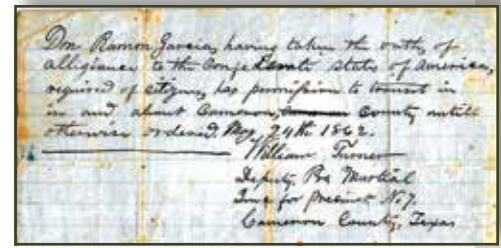 Don Ramon Garcia, having taken the oath of
allegiance to the Confederate States of America,
required of citizens, has permission to transit in
in and about Cameron, County untill
otherwise ordered. May, 24th 1862.
William Turner
Deputy Pro Martial
for Precinct No 7.
Cameron County, Texas